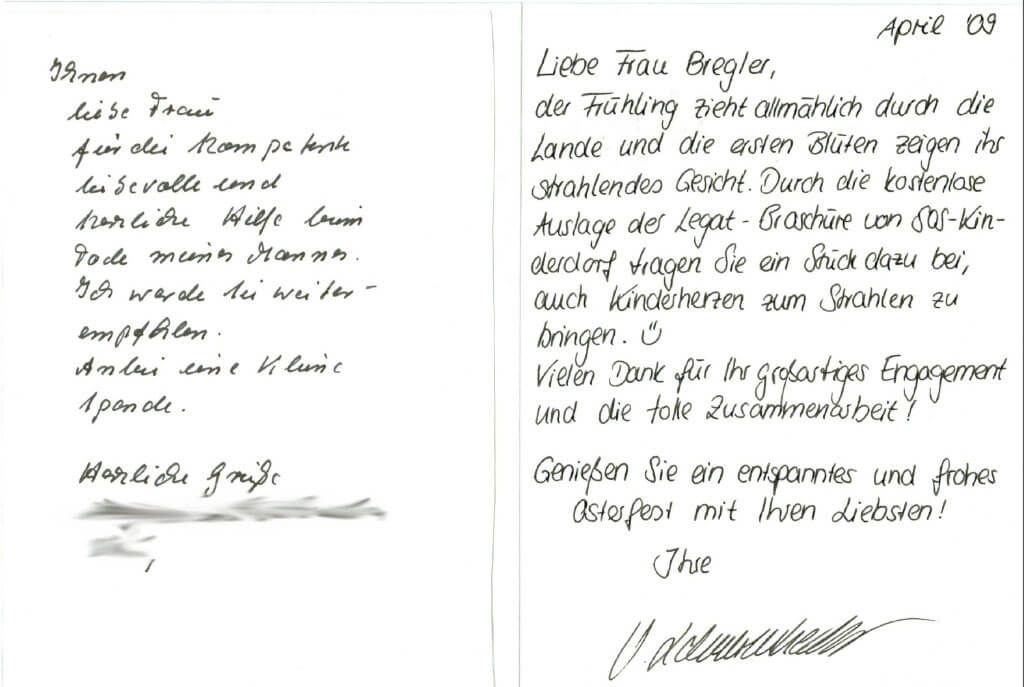 Ihnen
liebe Frau
für die kompetente
liebevolle und
herzliche Hilfe beim
Tode meines Mannes.
Ich werde Sie weiter-
empfehlen.
Anbei eine kleine
Spende.
Herzliche Grüße
April '09
Liebe Frau Bregler,
der Frühling zieht allmählich durch die
Lande und die ersten Blüten zeigen ihr
strahlendes Gesicht. Durch die kostenlose
Auslage der Legat-Broschüre von SOS-Kin-
derdorf tragen Sie ein Stück dazu bei,
auch Kinderherzen zum Strahlen zu
bringen. ☺
Vielen Dank für Ihr großartiges Engagement
und die tolle Zusammenarbeit!
Genießen Sie ein entspanntes und frohes
Osterfest mit Ihren Liebsten!
Ihre